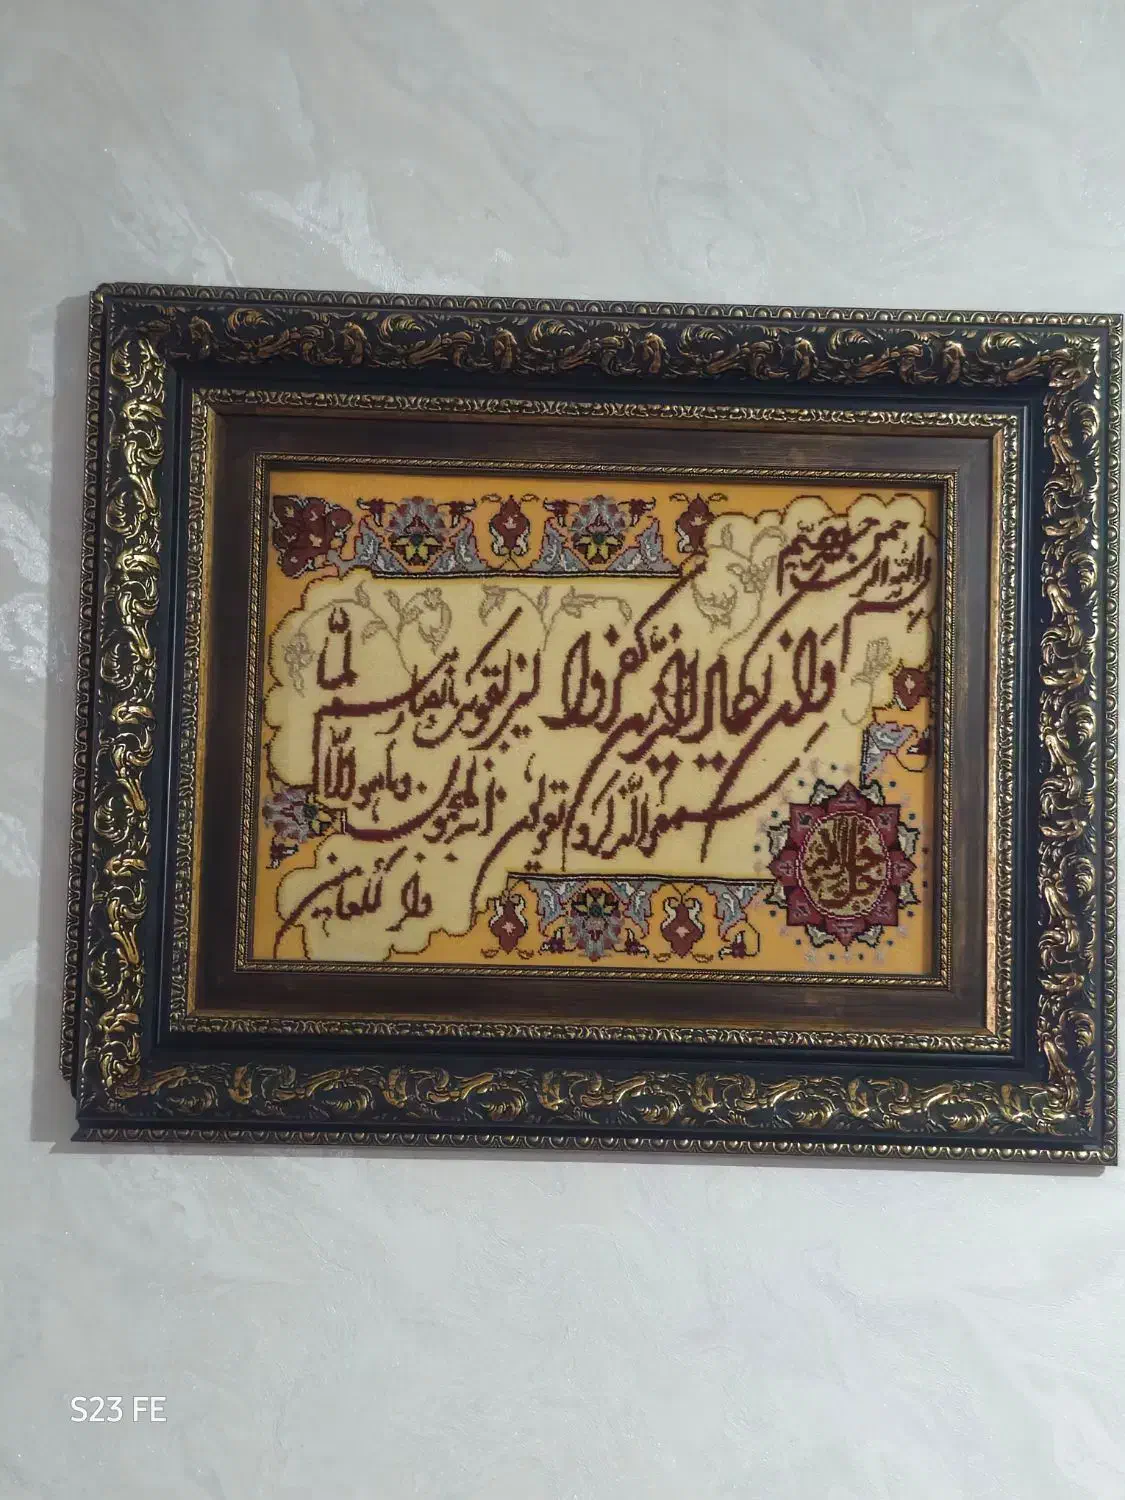 بسم الله الرحمن الرحیم
وان یکاد الذین کفروا لیزلقونک بابصارهم لما
سمعوا الذکر و یقولون انه لمجنون وما هو الا
ذکر للعالمین
S23 FE